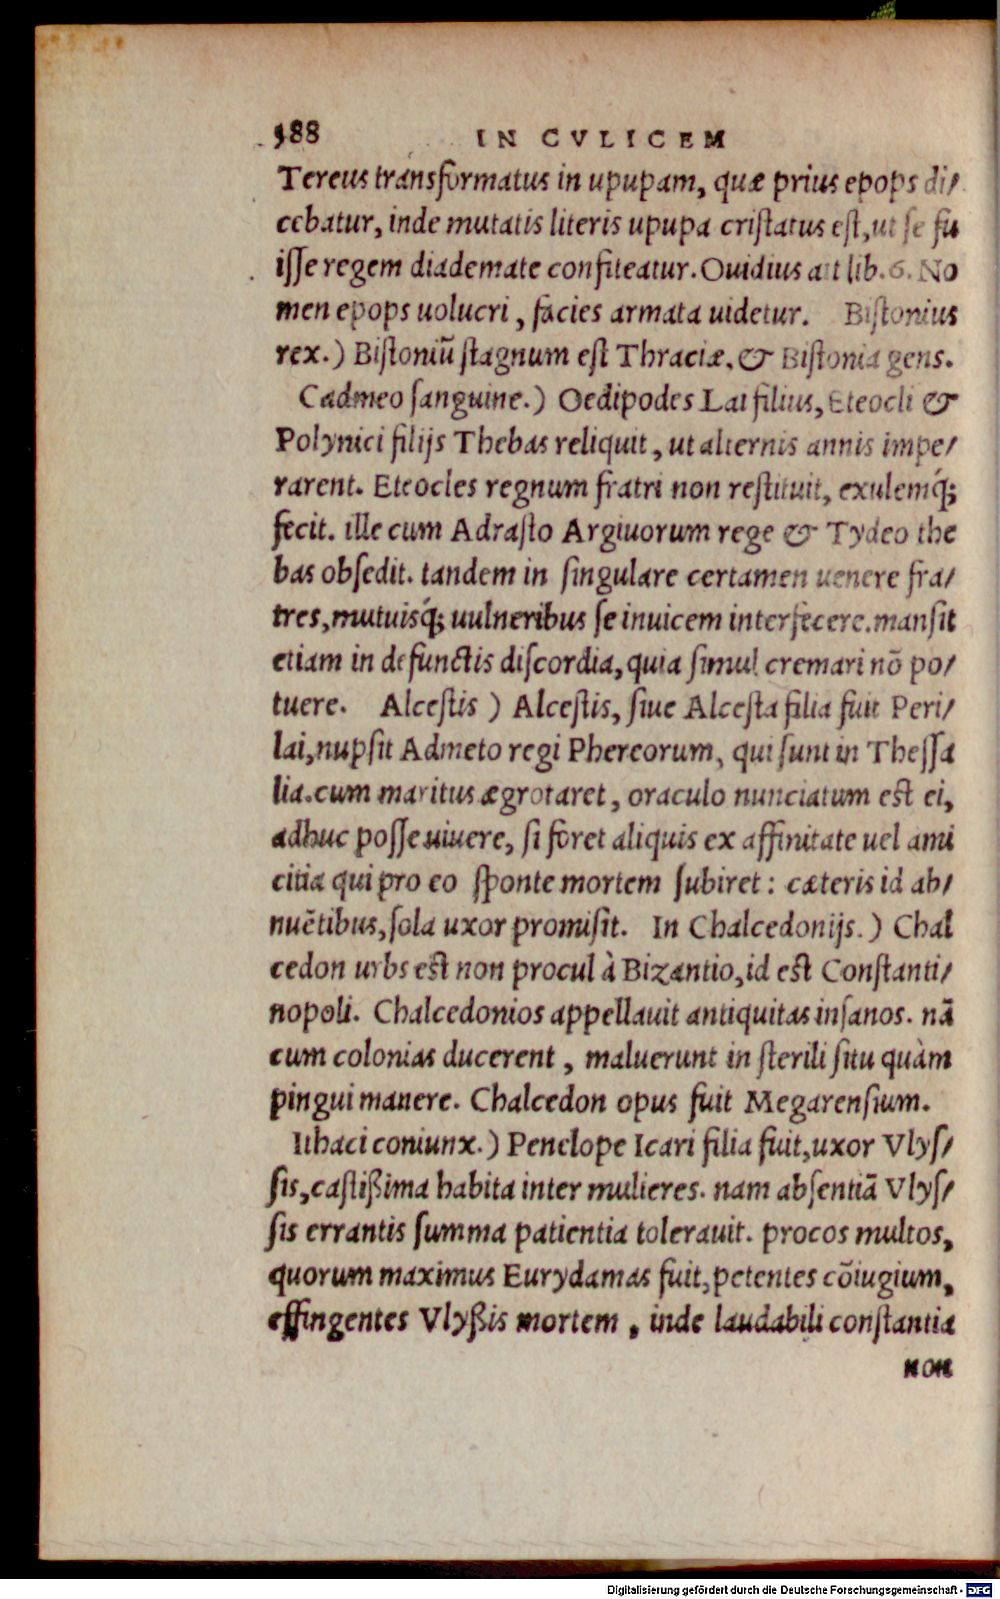 388 IN CVLICEM
Tereus transformatus in upupam, quæ prius epops di/
cebatur, inde mutatis literis upupa cristatus est, ut se fu
isse regem diademate confiteatur. Ouidius ait lib. 6. No
men epops uolucri, facies armata uidetur. Bistonius
rex.) Bistoniũ stagnum est Thraciæ, & Bistonia gens.
Cadmeo sanguine.) Oedipodes Lai filius, Eteocli &
Polynici filijs Thebas reliquit, ut alternis annis impe/
rarent. Eteocles regnum fratri non restituit, exulemq́;
fecit. ille cum Adrasto Argiuorum rege & Tydeo the
bas obsedit. tandem in singulare certamen uenere fra/
tres, mutuisq́; uulneribus se inuicem interfecere. mansit
etiam in defunctis discordia, quia simul cremari nõ po/
tuere. Alcestis ) Alcestis, siue Alcesta filia fuit Peri/
lai, nupsit Admeto regi Phereorum, qui sunt in Thessa
lia. cum maritus ægrotaret, oraculo nunciatum est ei,
adhuc posse uiuere, si foret aliquis ex affinitate uel ami
citia qui pro eo sponte mortem subiret: cæteris id ab/
nuẽtibus, sola uxor promisit. In Chalcedonijs.) Chal
cedon urbs est non procul à Bizantio, id est Constanti/
nopoli. Chalcedonios appellauit antiquitas insanos. nã
cum colonias ducerent, maluerunt in sterili situ quàm
pingui manere. Chalcedon opus fuit Megarensium.
Ithaci coniunx.) Penelope Icari filia fuit, uxor Vlys/
sis, castißima habita inter mulieres. nam absentiã Vlys/
sis errantis summa patientia tolerauit. procos multos,
quorum maximus Eurydamas fuit, petentes cõiugium,
effingentes Vlyßis mortem, inde laudabili constantia
non
Digitalisierung gefördert durch die Deutsche Forschungsgemeinschaft - DFG